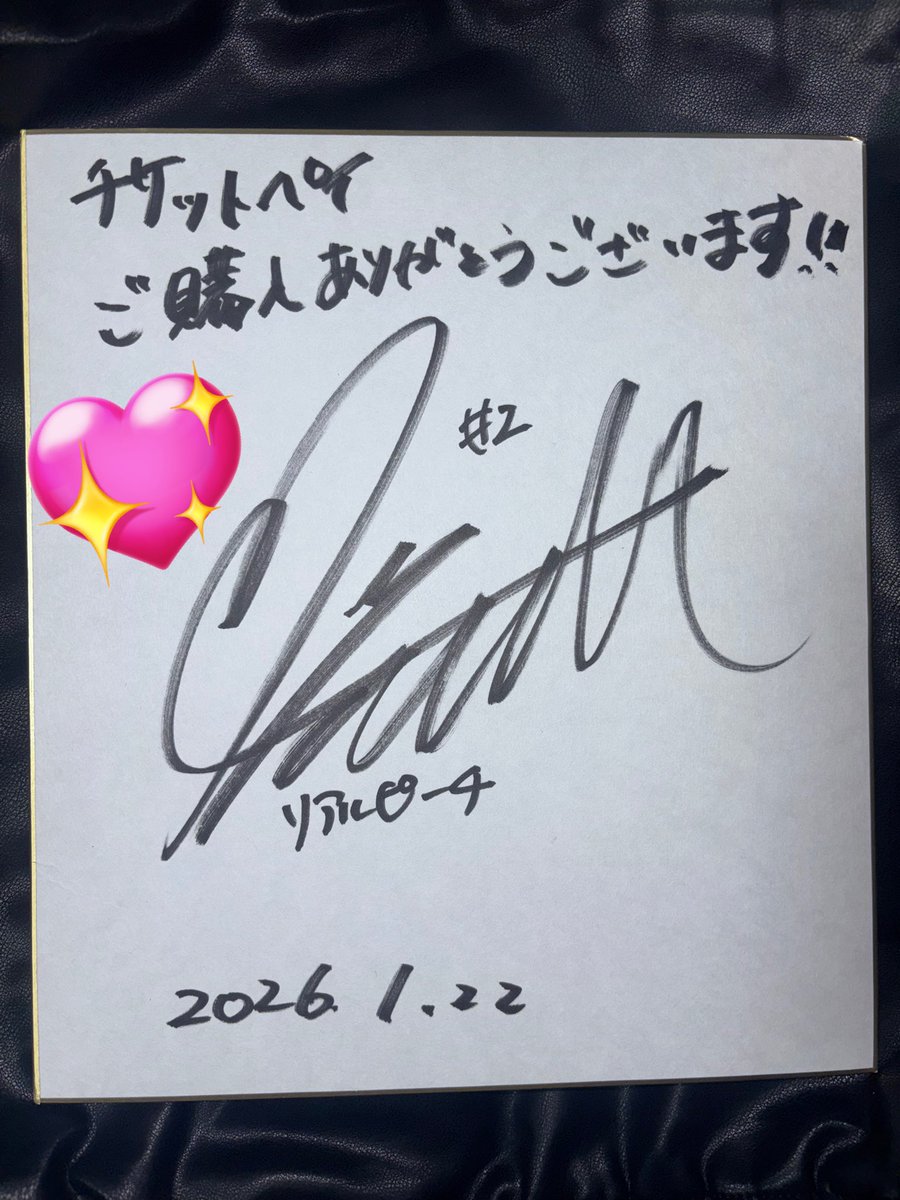 チケットペイ
ご購入ありがとうございます!!
#2
リアルピーチ
2026.1.22